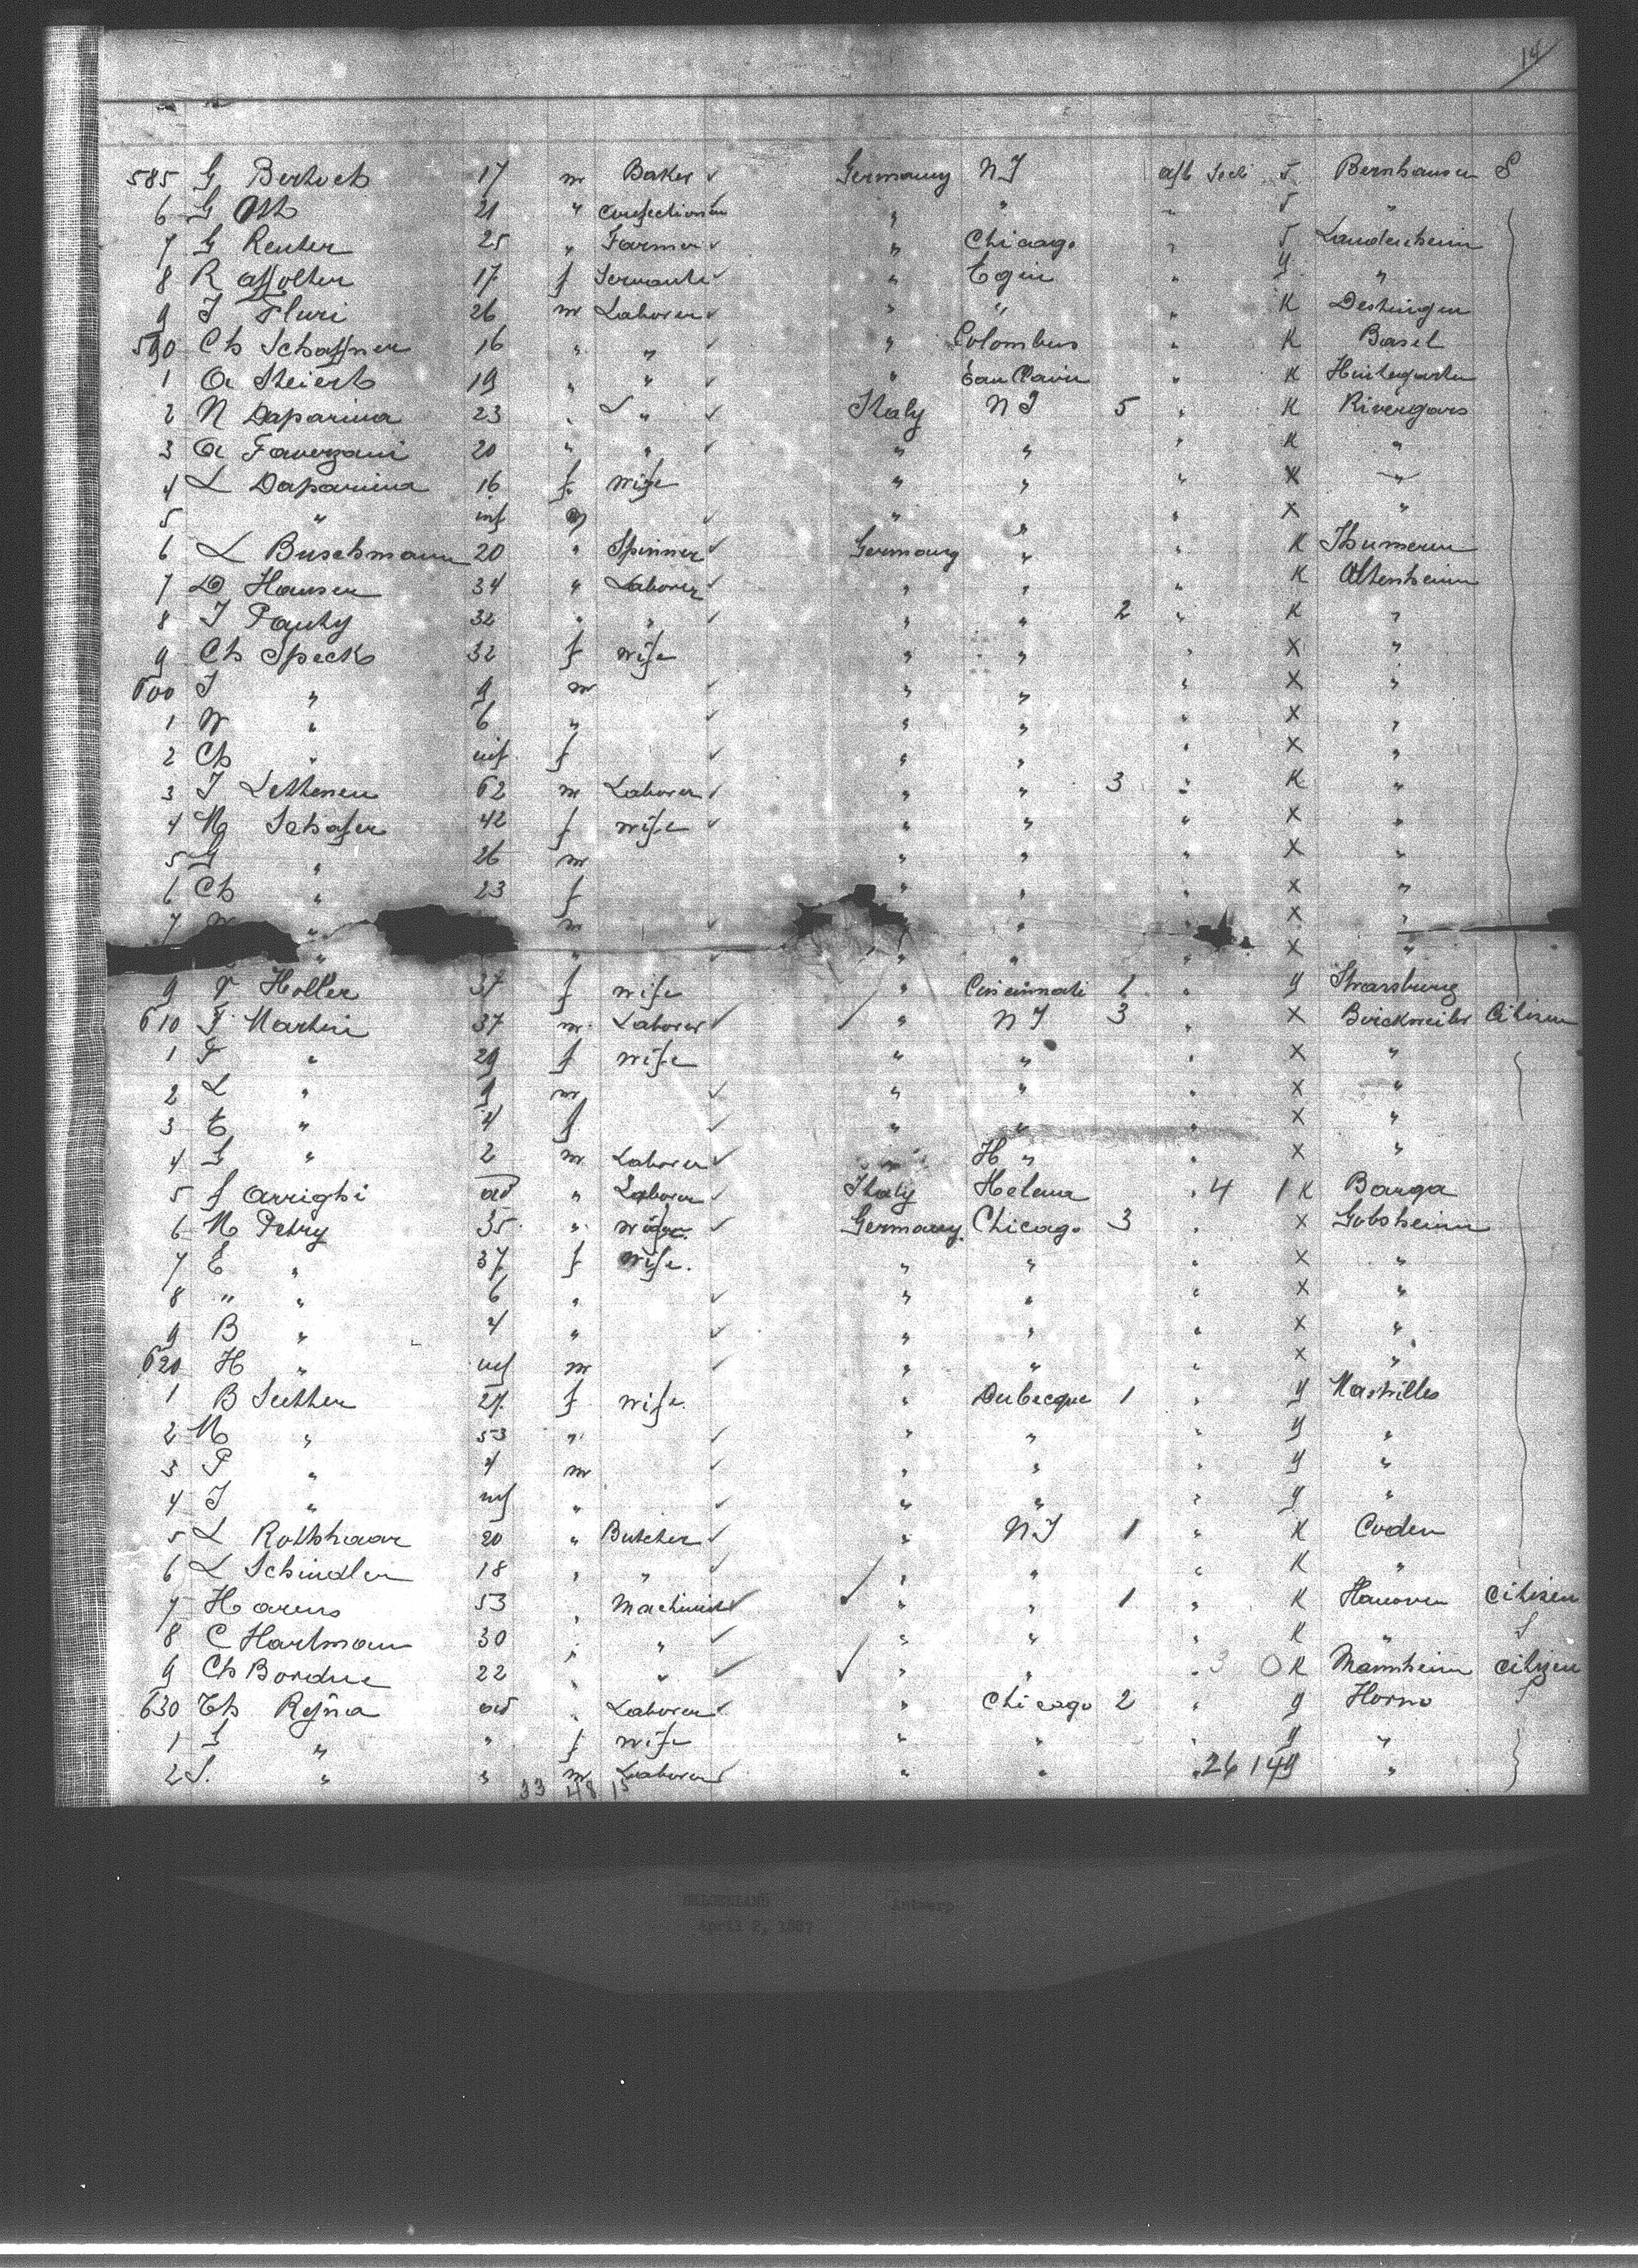 14
585 G Bertoch 17 m Baker ✓ Germany NJ aft Seck J Bernhausen S
6 G Ott 21 " Confectioner " " " J "
7 G Reuter 25 " Farmer ✓ " Chicago " J Landersheim
8 R Affolter 17 f Servant ✓ " Egin " y "
9 J Fluri 26 m Laborer ✓ " " " K
590 Ch Schaffner 16 " " ✓ " Colombus " K Basel
1 A Steiert 19 " " ✓ " Eau Clair " K
2 N Daparina 23 " L " ✓ Italy NJ 5 " K Rivergars
3 A Faverzani 20 " " ✓ " " " K "
4 L Daparina 16 f wife " " " X "
5 " inf m ✓ " " " X "
6 L Buschmann 20 " Spinner ✓ Germany " " K
7 D Hauser 34 " Laborer ✓ " " " K Ottenheim
8 J Pauty 32 " " ✓ " " 2 " K "
9 Ch Speck 32 f wife " " " X "
600 J " 9 m ✓ " " " X "
1 W " 6 " ✓ " " " X "
2 Ch " inf f ✓ " " " X "
3 J Lettenen 62 m Laborer ✓ " " 3 " K "
4 M Schafer 42 f wife ✓ " " " X "
5 G " 26 m " " " X "
6 Ch " 23 f " " " X "
7 " m ✓ " " X "
" " " " " X "
9 Holler 37 f wife " Cincinnati 1 " y Strasburg
610 F Martin 37 m Laborer ✓ / " NJ 3 " X Birckweiler Citisen
1 F " 29 f wife " " " X "
2 L " 9 m ✓ " " " X "
3 E " 4 f ✓ " " " X "
4 G " 2 m Laborer ✓ " H " " X "
5 J Arrighi ad " Laborer ✓ Italy Helena " 4 1 K Barga
6 M Petry 35 " ✓ Germany Chicago 3 " X Gobsheim
7 E " 37 f wife. " " " X "
8 " " 6 " ✓ " " " X "
9 B " 4 " ✓ " " " X "
620 H " inf m ✓ " " " X "
1 B Sutter 27 f wife. " Dubecque 1 " y
2 M " 53 " ✓ " " " y "
3 P " 4 m ✓ " " " y "
4 J " inf " ✓ " " " y "
5 L Rothhaar 20 " Butcher ✓ " NJ 1 " K Coden
6 L Schindler 18 " " ✓ " " " K "
7 H arens 53 " Machinist ✓ ✓ " " 1 " K Hanoven Citisen
8 C Hartman 30 " " ✓ " " " K " S
9 Ch Bordue 22 " " ✓ ✓ " " " 3 0 K Mannheim Citizen
630 Th Rejna ad " Laborer ✓ " Chicago 2 " y Horno
1 G " " f wife " " " y "
2 S. " " m Laborer ✓ " " " 26 14 y "
33 48 15
Antwerp
April 2, 1887